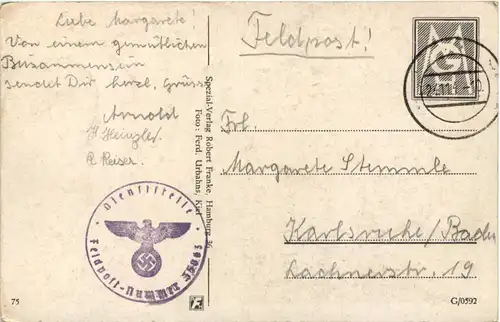 Liebe Margarete!
Von einem gemütlichen
Beisammensein
sendet Dir herzl. Grüsse
Arnold
H Heinzler
R Kaiser.
Feldpost!
Spezial-Verlag Robert Franke, Hamburg 36
Foto: Ferd. Urbahns, Kiel
Frl.
Margarete Stemmle
Karlsruhe/Baden
Lachnerstr. 19
Dienststelle
Feldpost-Nummer
75
G/0592